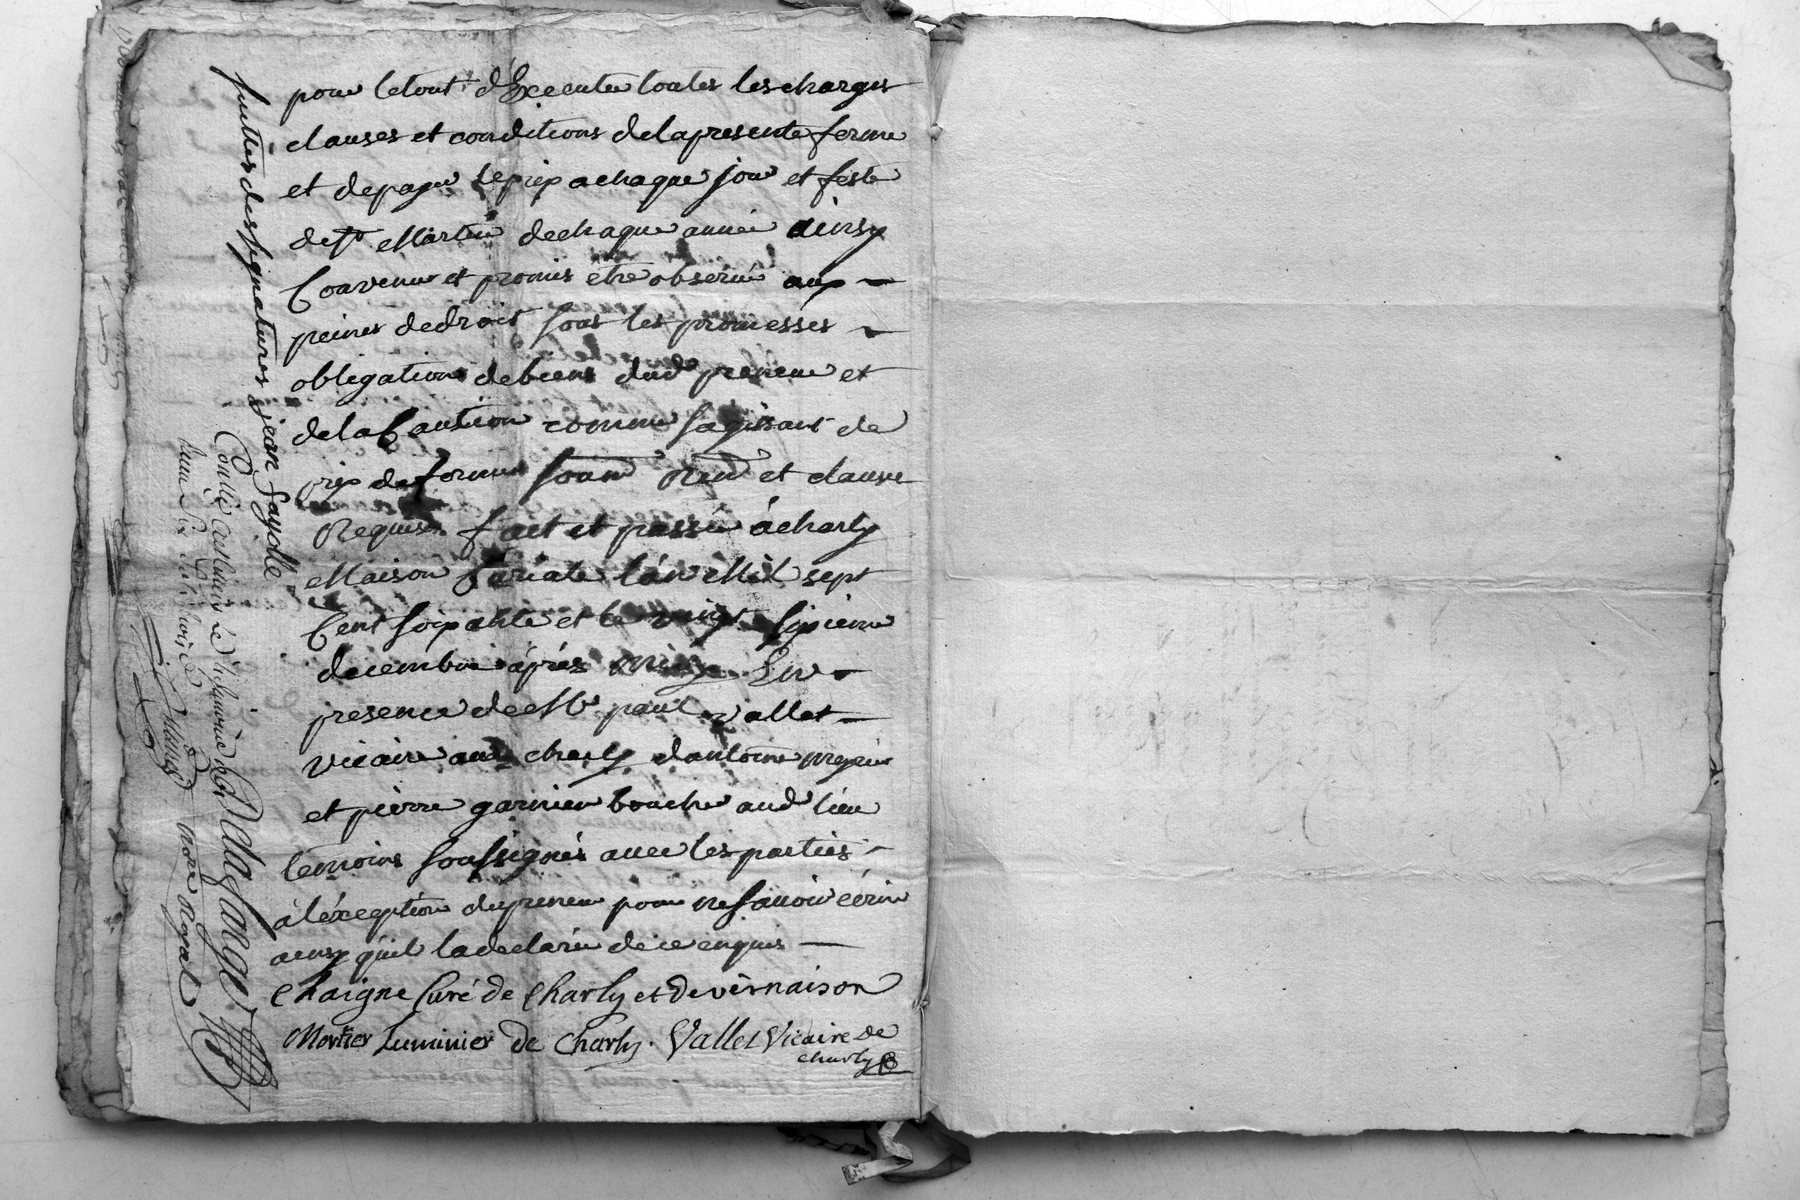 pour letout d'Execute toutes les charges
clauses et conditions delapresente ferme
et depayer leprix achaque jour et feste
de st Martin dechaque année ainsy
Convenu et promis etre observé aux
peines dedroit sous les promesses
obligations debiens dud preneur et
delaCaution comme sagissant de
prix deferme soum Ren et clause
Requise fait et passé àcharly
Maison Curiale l'an Mil sept
Cent soixante et le vingt sixieme
decembre après midy En
presence de Mr paul vallet
vicaire aud charly dantoine
et pierre garnier bouche aud lieu
temoins soussignés avec les parties
àléxception dupreneur pour nesavoir écrire
ainsy quil ladeclaré dece enquis
Chaigne Curé de Charly et de vernaison
Mortier Luminier de Charly. Vallet Vicaire de
charly
suittes des signatures jean fayolle
Controllé
Delafarge
nore Royal